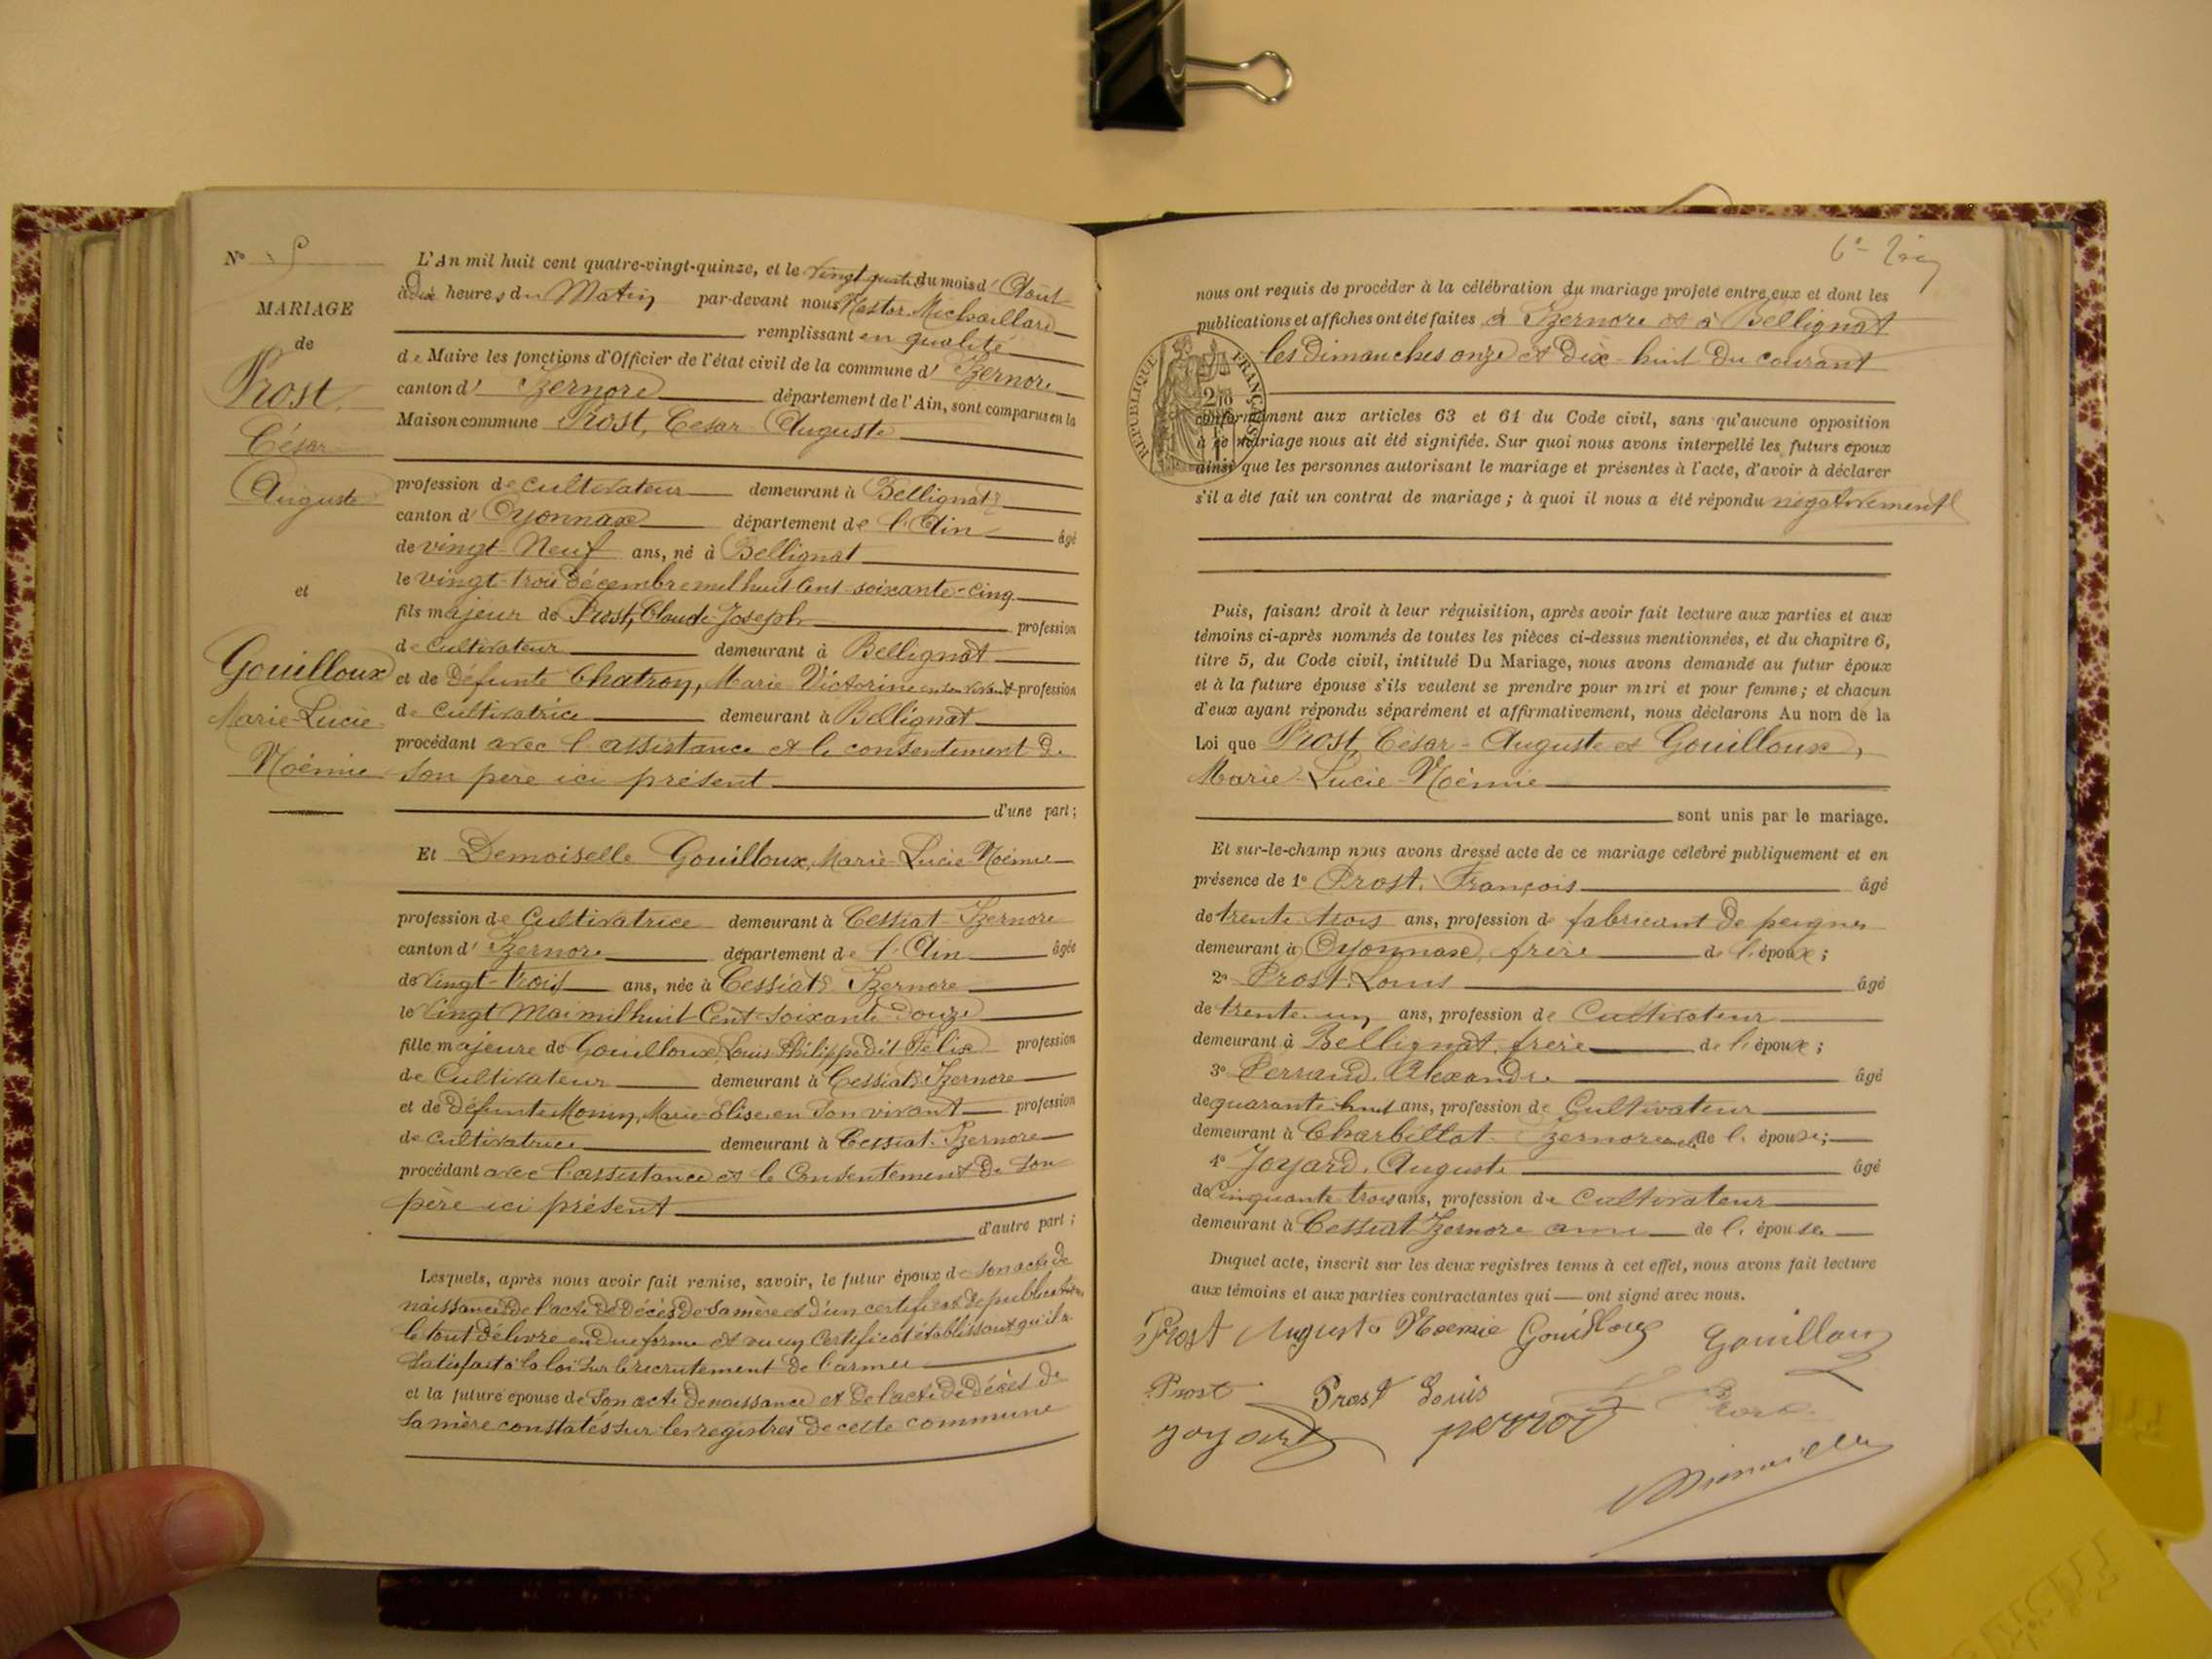 N° 5
MARIAGE
de
Prost
César
Auguste
et
Gouilloux
Marie-Lucie
Noémie
L'An mil huit cent quatre-vingt-quinze, et le vingt quatre du mois d' Août
à dix heures du Matin par-devant nous Nestor Michaillard
remplissant en qualité
de Maire les fonctions d'Officier de l'état civil de la commune d' Izernore
canton d' Izernore département de l'Ain, sont comparus en la
Maison commune Prost, César Auguste
profession de cultivateur demeurant à Bellignat
canton d' Oyonnax département de l'Ain âgé
de vingt-Neuf ans, né à Bellignat
le vingt-trois décembre mil huit cent soixante-cinq
fils majeur de Prost, Claude-Joseph profession
de cultivateur demeurant à Bellignat
et de défunte Chatron, Marie Victorine en son vivant profession
de cultivatrice demeurant à Bellignat
procédant avec l'assistance et le consentement de
son père ici présent
d'une part;
Et Demoiselle Gouilloux, Marie-Lucie Noémie
profession de cultivatrice demeurant à Cessiat-Izernore
canton d' Izernore département de l'Ain âgée
de vingt-trois ans, née à Cessiat Izernore
le vingt Mai mil huit Cent soixante-douze
fille majeure de Gouilloux, Louis Philippe dit Félix profession
de Cultivateur demeurant à Cessiat Izernore
et de défunte Monin, Marie-Elise en son vivant profession
de cultivatrice demeurant à Cessiat Izernore
procédant avec l'assistance et le consentement de son
père ici présent
d'autre part;
Lesquels, après nous avoir fait remise, savoir, le futur époux de son acte de
naissance de l'acte de décès de sa mère et d'un certificat de publication,
le tout délivré en due forme et vu un certificat établissant qu'il a
satisfait à la loi sur le recrutement de l'armée
et la future épouse de son acte de naissance et de l'acte de décès de
sa mère constatés sur les registres de cette commune
nous ont requis de procéder à la célébration du mariage projeté entre eux et dont les
publications et affiches ont été faites à Izernore et à Bellignat
les Dimanches onze et Dix-huit du courant
RÉPUBLIQUE FRANÇAISE
conformément aux articles 63 et 64 du Code civil, sans qu'aucune opposition
à ce mariage nous ait été signifiée. Sur quoi nous avons interpellé les futurs époux
ainsi que les personnes autorisant le mariage et présentes à l'acte, d'avoir à déclarer
s'il a été fait un contrat de mariage; à quoi il nous a été répondu négativement
Puis, faisant droit à leur réquisition, après avoir fait lecture aux parties et aux
témoins ci-après nommés de toutes les pièces ci-dessus mentionnées, et du chapitre 6,
titre 5, du Code civil, intitulé Du Mariage, nous avons demandé au futur époux
et à la future épouse s'ils veulent se prendre pour mari et pour femme; et chacun
d'eux ayant répondu séparément et affirmativement, nous déclarons Au nom de la
Loi que Prost, César-Auguste et Gouilloux,
Marie-Lucie-Noémie
sont unis par le mariage.
Et sur-le-champ nous avons dressé acte de ce mariage célébré publiquement et en
présence de 1° Prost, François âgé
de trente trois ans, profession de fabricant de peignes
demeurant à Oyonnax, frère de l'époux;
2° Prost Louis âgé
de trente-un ans, profession de Cultivateur
demeurant à Bellignat, frère de l'époux;
3° Perraud, Alexandre âgé
de quarante-huit ans, profession de Cultivateur
demeurant à Charbillat Izernore de l'épouse;
4° Joyard, Auguste âgé
de Cinquante trois ans, profession de Cultivateur
demeurant à Cessiat-Izernore ami de l'épouse
Duquel acte, inscrit sur les deux registres tenus à cet effet, nous avons fait lecture
aux témoins et aux parties contractantes qui ont signé avec nous.
Prost Auguste Noemie Gouilloux Gouilloux
Prost Prost Louis
joyard